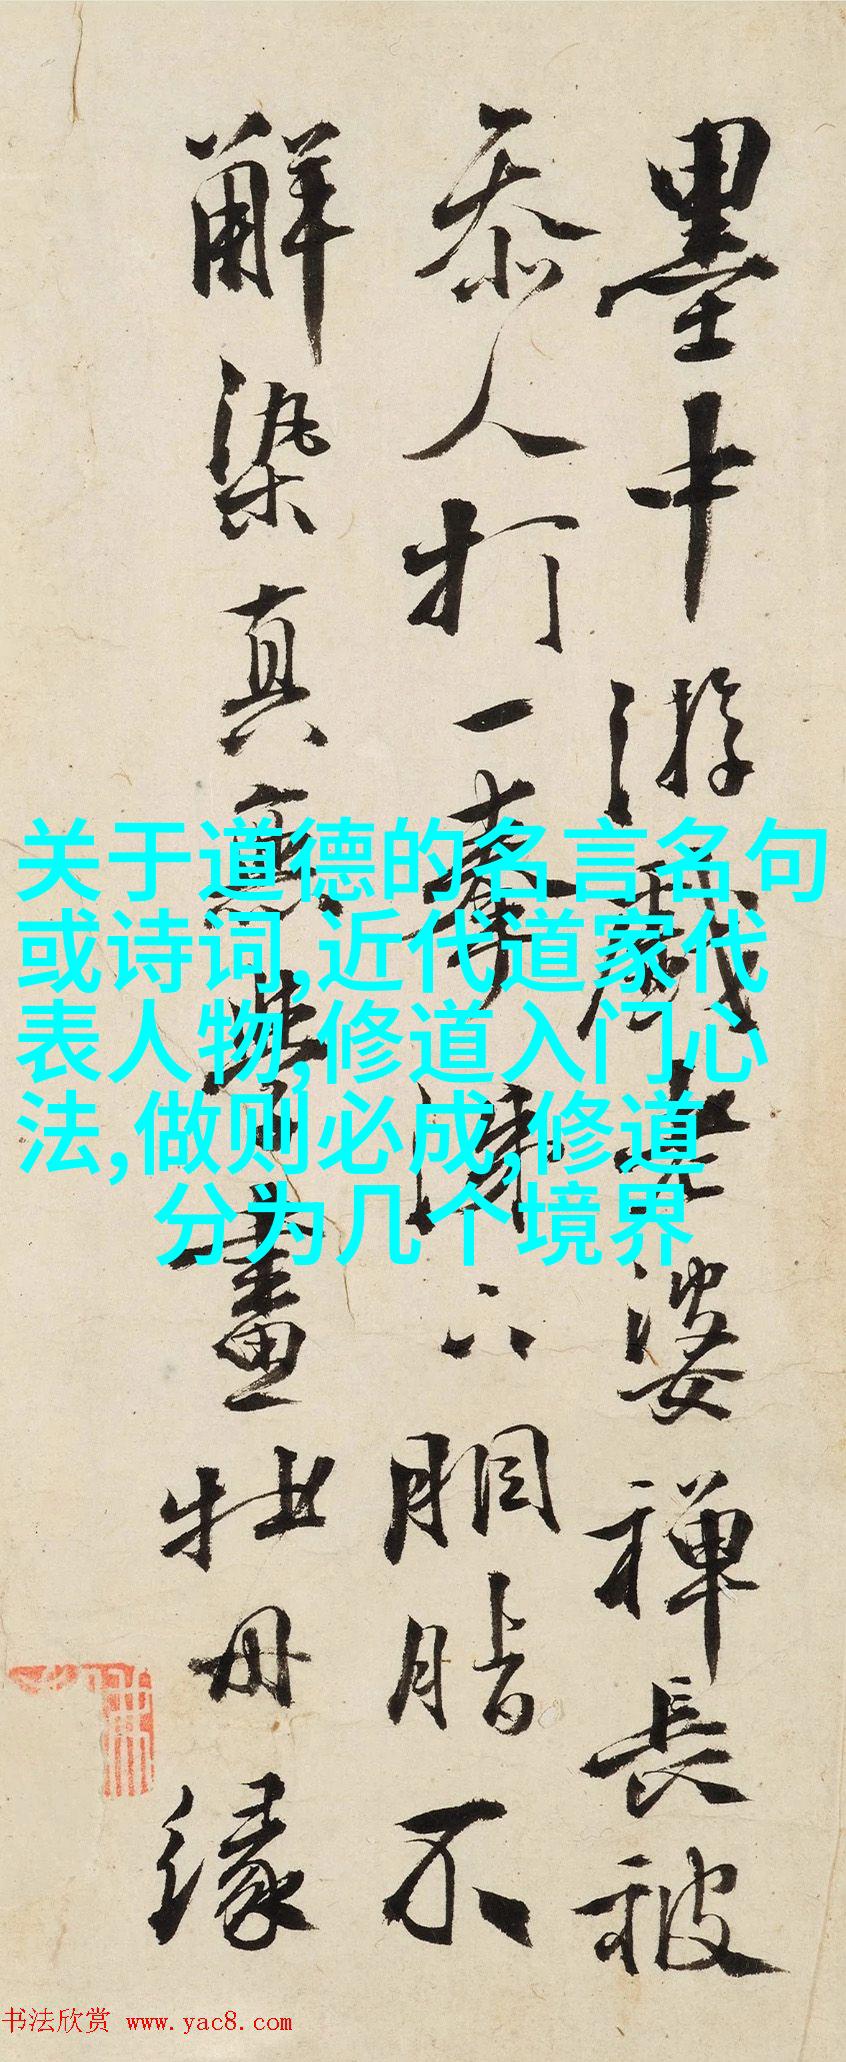 墨中游戲老婆禪長被
参人打一拳涕下胭脂不
解染真無學畫牡丹緣
关于道德的名言名句
或诗词,近代道家代
表人物,修道入门心
法,做则必成,修道
分为几个境界
书法欣赏 www.yac8.com